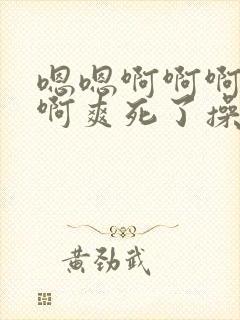 嗯嗯啊啊啊
啊爽死了操
黄劲武